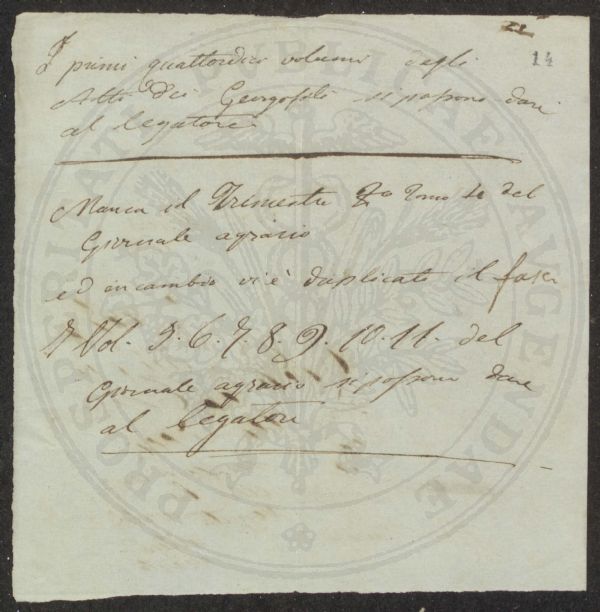 14
I primi quattordici volumi degli
Atti dei Georgofili si possono dare
al legatore
Manca il Trimestre 2º Tomo del
Giornale agrario
ed in cambio vi è duplicato il fasc
I Vol. 5. 6. 7. 8. 9. 10. 11. del
Giornale agrario si possono dare
al legatore
PROSPERITATI PUBLICAE AUGENDAE